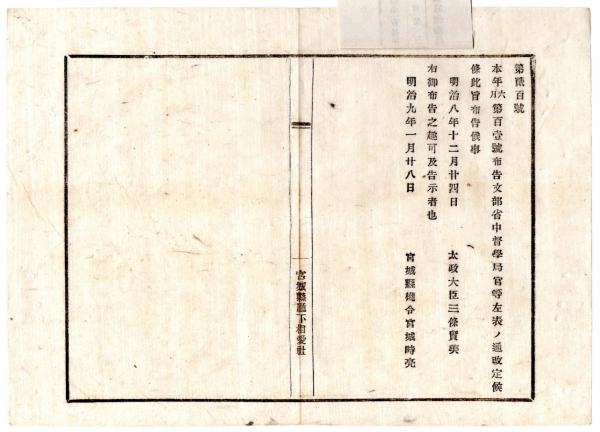 第貳百號
本年六月第百壹號布告文部省中督學局官等左表ノ通改定候
條此旨布告候事
明治八年十二月廿四日　太政大臣三條實美
右御布告之趣可及告示者也
明治九年一月廿八日　宮城縣權令宮城時亮
宮城縣廳下相愛社